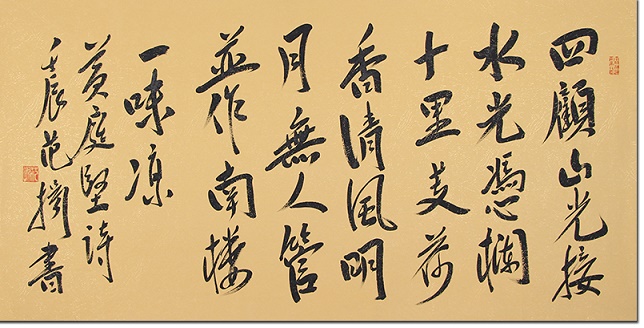 四顧山光接
水光憑欄
十里芰荷
香清風明
月無人管
並作南楼
一味凉
黃庭堅詩
壬辰范書